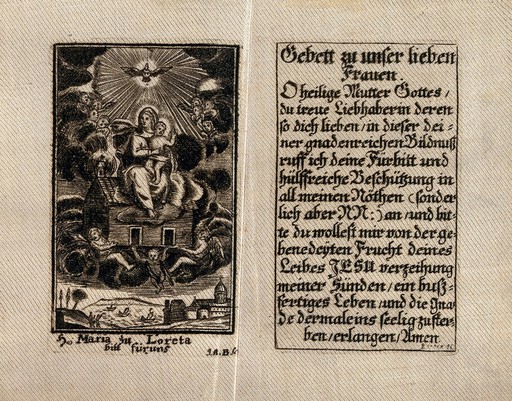 H. Maria zu Loreta
bitt für uns
J.A.B.
Gebett zu unser lieben
Frauen.
O heilige Mutter Gottes /
du treue Liebhaberin deren
so dich lieben / in dieser dei-
ner gnadenreichen Bildnuß
ruff ich deine Fürbitt und
hülffreiche Beschützung in
all meinen Nöthen (sonder
lich aber NN:) an / und bit-
te du wollest mir von der ge-
benedeyten Frucht deines
Leibes JESU verzeihung
meiner Sünden / ein buß-
fertiges Leben / und die Gna-
de dermaleins seelig zu ster-
ben / erlangen / Amen